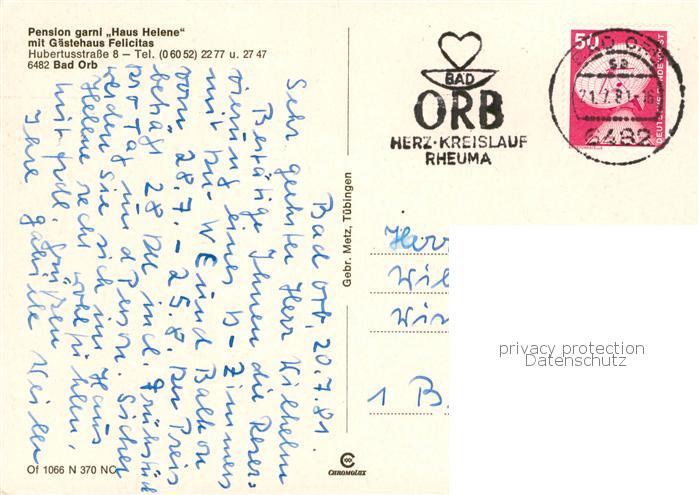 Pension garni „Haus Helene“
mit Gästehaus Felicitas
Hubertusstraße 8 — Tel. (0 60 52) 22 77 u. 27 47
6482 Bad Orb
Bad Orb, 20.7.81.
Sehr geehrter Herr Wilhelm
Bestätige Ihnen die Reser-
vierung eines D-Zimmers
mit Du-WC und Balkon
vom 28.7. - 25.8. Der Preis
beträgt 28 DM incl. Frühstück
pro Tag und Person. Sicher
werden Sie sich im Haus
Helene recht wohl fühlen.
Mit frdl. Grüßen
Ihre
Of 1066 N 370 NC
Gebr. Metz, Tübingen
CHROMOLUX
BAD
ORB
HERZ·KREISLAUF
RHEUMA
50
DEUTSCHE BUNDESPOST
BAD ORB
sa
21.7.81-16
6482
Herr
Wil
Win
1 B
privacy protection
Datenschutz